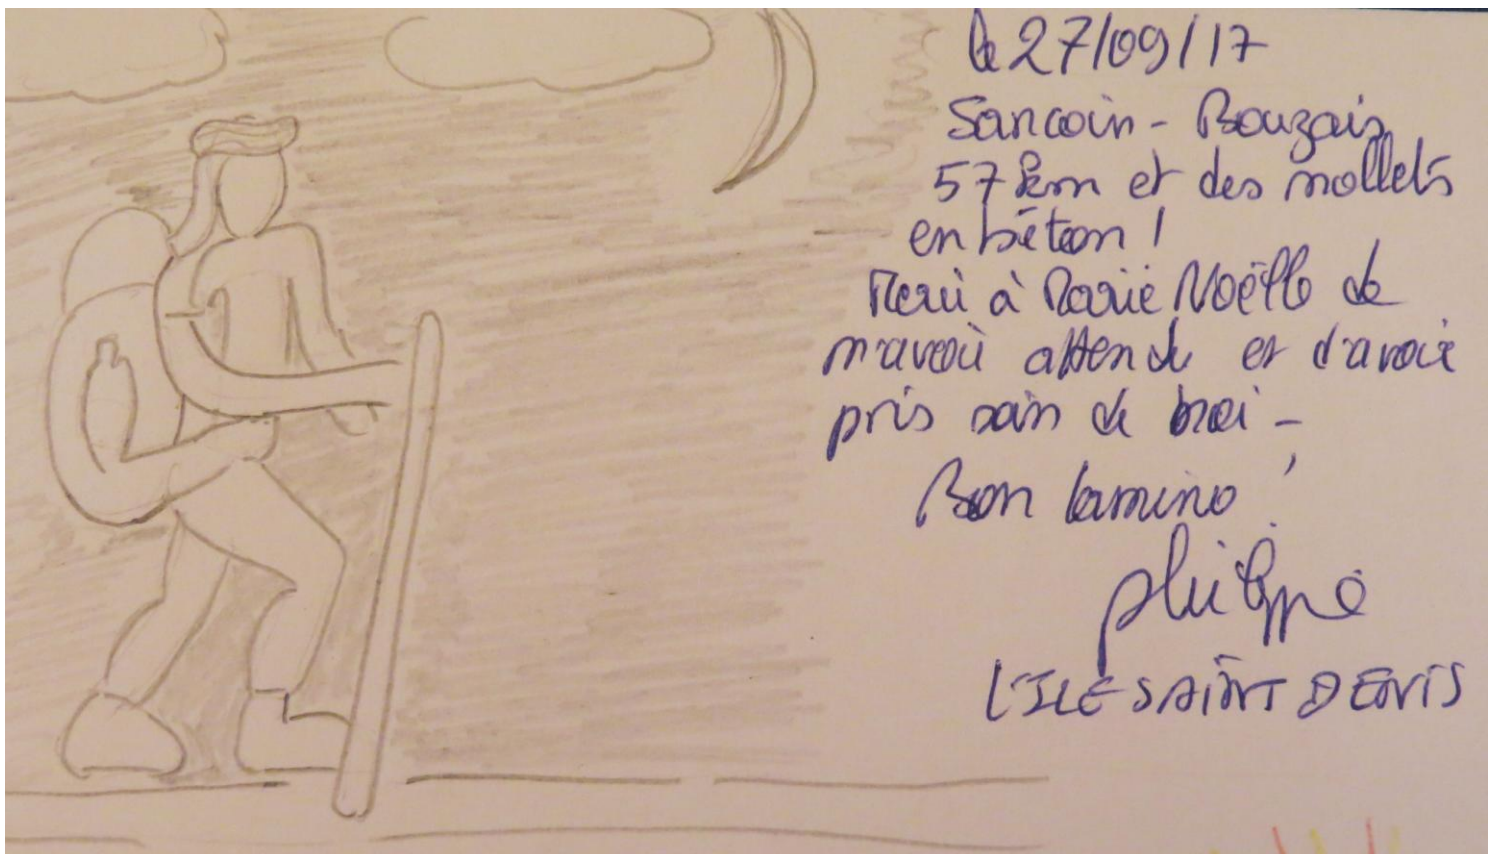 le 27/09/17
Sancoin - Bouzais
57 km et des mollets
en béton !
Merci à Marie Noëlle de
m'avoir attendu et d'avoir
pris soin de moi -
Bon Camino !
philippe
L'ILE SAINT DENIS